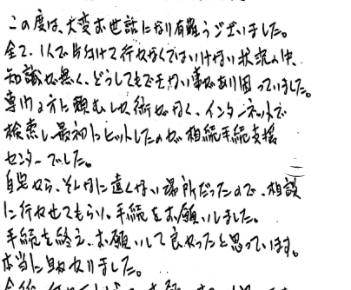 この度は、大変お世話になり有難うございました。
全て、1人で片付けて行かなくてはいけない状況の中、
知識が無く、どうしてもできない事があり困っていました。
専門の方に頼むしか術がなく、インターネットで
検索し最初にヒットしたのが相続手続支援
センターでした。
自宅から、そんなに遠くない場所だったので、相談
に行かせてもらい、手続をお願いしました。
手続を終え、お願いして良かったと思っています。
本当に助かりました。